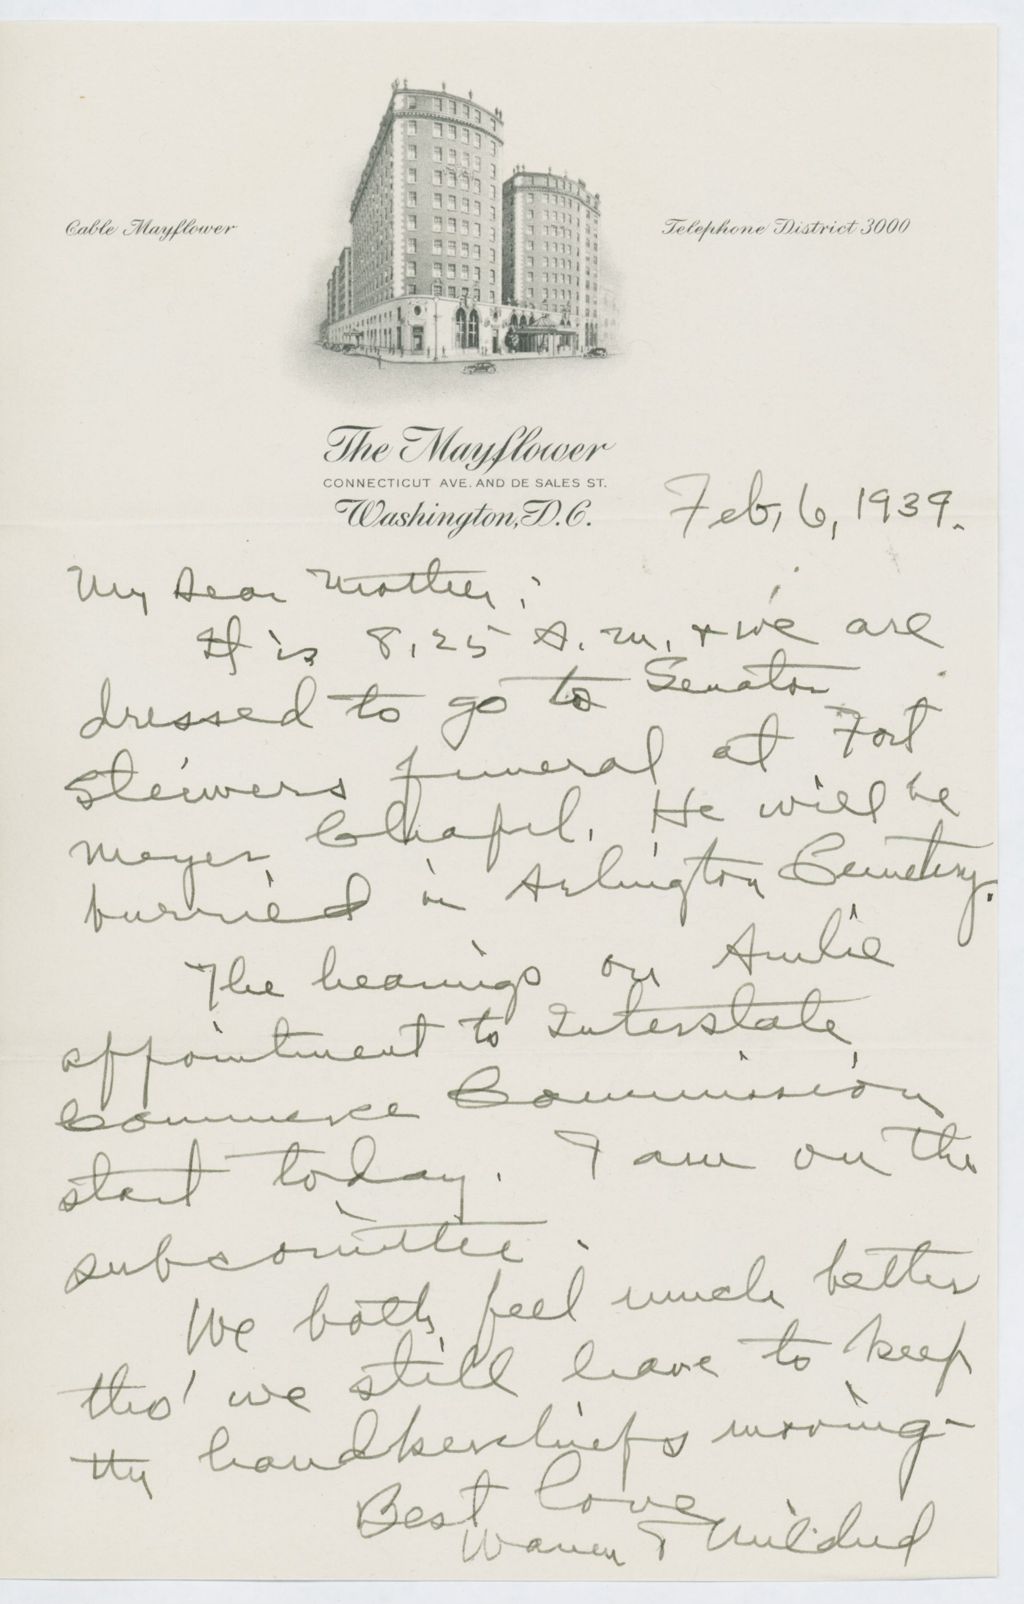 Cable Mayflower
Telephone District 3000
The Mayflower
CONNECTICUT AVE. AND DE SALES ST.
Washington, D.C.
Feb, 6, 1939.
My Dear Mother:
It is 8,25 A.M. & we are
dressed to go to Senator
Steiwers funeral at Fort
Meyer Chapel. He will be
burried in Arlington Cemetery.
The hearings on Amlie
appointment to Interstate
Commerce Commission
start today. I am on the
subcomittee.
We both feel much better
tho' we still have to keep
the handkerchiefs moving-
Best love
Warren & Mildred